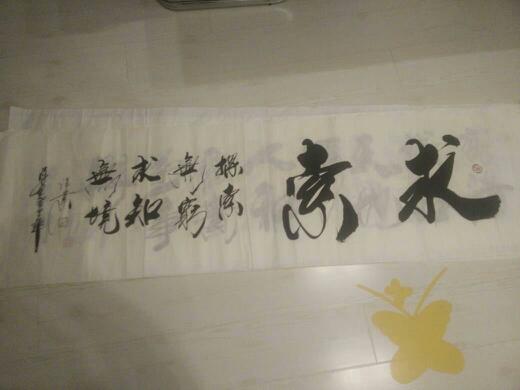 求索
探索
無窮
求知
無境